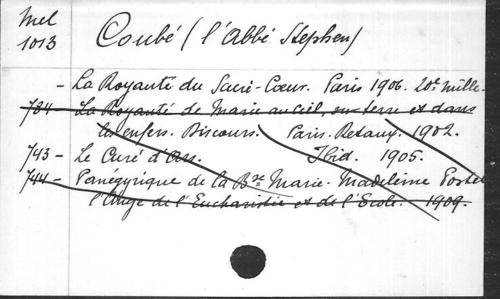 Mel
1013
Coubé (l'Abbé Stephen)
- La Royauté du Sacré-Cœur. Paris 1906. 20e mille.
784 - La Royauté de Marie au ciel, sur terre et dans
les enfers. Discours. Paris. Retaux. 1902.
743 - Le Curé d'Ars. Ibid. 1905.
744 - Panégyrique de la Bse Marie-Madeleine Postel
l'Ange de l'Eucharistie et de l'Ecole. 1909.